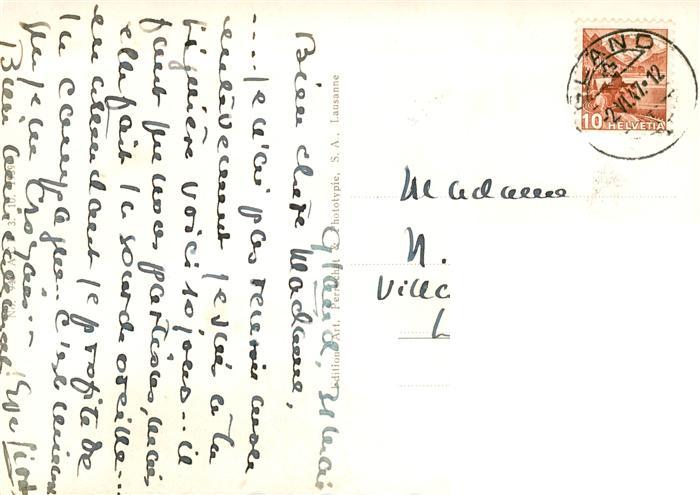 Gland, 31 mai
Bien chère Madame,
.... Je n'ai pas réuni mon
enlèvement! Je suis à la
lignière voici 10 jours... il
faut que nous partions, mais
elle fait la sourde oreille...
en attendant je profite de
la campagne... C'est mieux
qu'un
Bien amicalement!
Editions Art. Perrochet & Phototypie, S. A., Lausanne
GLAND
2.VI.47.-12
10 HELVETIA
Madame
N.
Villa
L